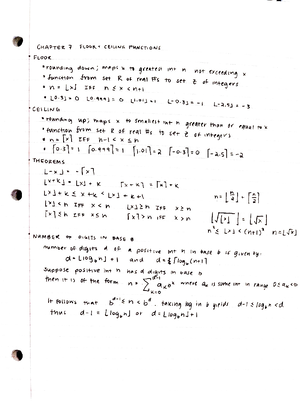 CHAPTER 7 FLOOR + CEILING FUNCTIONS
• FLOOR
• rounding down; maps x to greatest int n not exceeding x
• function from set R of real #s to set Z of integers
• n = ⌊x⌋ IFF n ≤ x < n+1
• ⌊0.3⌋ = 0 ⌊0.999⌋ = 0 ⌊1.01⌋ = 1 ⌊-0.3⌋ = -1 ⌊-2.5⌋ = -3
• CEILING
• rounding up; maps x to smallest int n greater than or equal to x
• function from set R of real #s to set Z of integers
• n = ⌈x⌉ IFF n-1 < x ≤ n
• ⌈0.3⌉ = 1 ⌈0.999⌉ = 1 ⌈1.01⌉ = 2 ⌈-0.3⌉ = 0 ⌈-2.5⌉ = -2
• THEOREMS
⌊-x⌋ = -⌈x⌉
⌊x+k⌋ = ⌊x⌋ + k ⌈x+k⌉ = ⌈x⌉ + k n = ⌊n/2⌋ + ⌈n/2⌉
⌊x⌋ + k ≤ x+k < ⌊x⌋ + k+1
⌊x⌋ < n IFF x < n ⌊x⌋ ≥ n IFF x ≥ n ⌊√⌊x⌋⌋ = ⌊√x⌋
⌈x⌉ ≤ n IFF x ≤ n ⌈x⌉ > n IFF x > n n² ≤ ⌊x⌋ < (n+1)² n = ⌊√x⌋
• NUMBER OF DIGITS IN BASE b
number of digits d of a positive int n in base b is given by:
d = ⌊log_b n⌋ + 1 and d = ⌈log_b (n+1)⌉
Suppose positive int n has d digits in base b
then it is of the form n = ∑_{k=0}^{d-1} a_k b^k where a_k is some int in range
It follows that b^{d-1} ≤ n < b^d. taking log in b yields d-1 ≤ log_b n < d
thus d-1 = ⌊log_b n⌋ or d = ⌊log_b n⌋ + 1